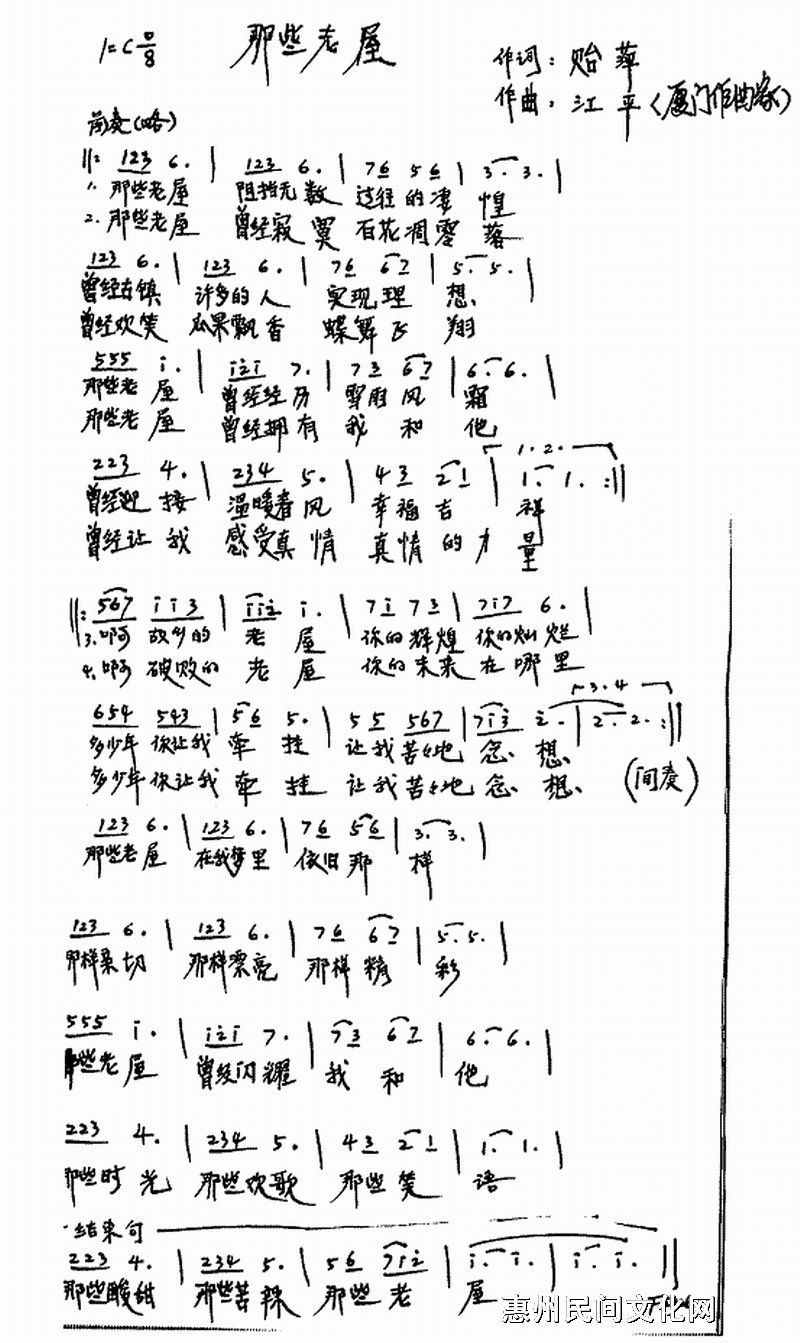 那些老屋
1=C 6/8
作词：贻萍
作曲：江平（厦门作曲家）
前奏（略）
‖: 123 6. | 123 6. | 76 56 | 3. 3. |
1. 那些老屋 阻挡无数 过往的凄惶
2. 那些老屋 曾经寂寞 百花凋零落
123 6. | 123 6. | 76 67 | 5. 5. |
曾经古镇 许多的人 实现理想
曾经欢笑 瓜果飘香 蝶舞飞翔
555 i. | i2i 7. | 73 67 | 6. 6. |
那些老屋 曾经经历 雪雨风霜
那些老屋 曾经拥有 我和他
1.2.
223 4. | 234 5. | 43 21 | 1. 1. :‖
曾经迎接 温暖春风 幸福吉祥
曾经让我 感受真情 真情的力量
‖: 567 ii3 | ii2 i. | 7i 73 | 7i7 6. |
3. 啊 故乡的 老屋 你的辉煌 你的灿烂
4. 啊 破败的 老屋 你的未来 在哪里
3.4
654 543 | 56 5. | 55 567 | 7i3 i. | 2. 2. :‖
多少年 你让我 牵挂 让我苦苦地 念想
多少年 你让我 牵挂 让我苦苦地 念想
（间奏）
123 6. | 123 6. | 76 56 | 3. 3. |
那些老屋 在我梦里 依旧那样
123 6. | 123 6. | 76 67 | 5. 5. |
那样亲切 那样漂亮 那样精彩
555 i. | i2i 7. | 73 67 | 6. 6. |
那些老屋 曾经闪耀 我和他
223 4. | 234 5. | 43 21 | 1. 1. |
那些时光 那些欢歌 那些笑语
结束句
223 4. | 234 5. | 56 7i2 | i. i. | i. i. ‖
那些酸甜 那些苦辣 那些老屋
惠州民间文化网